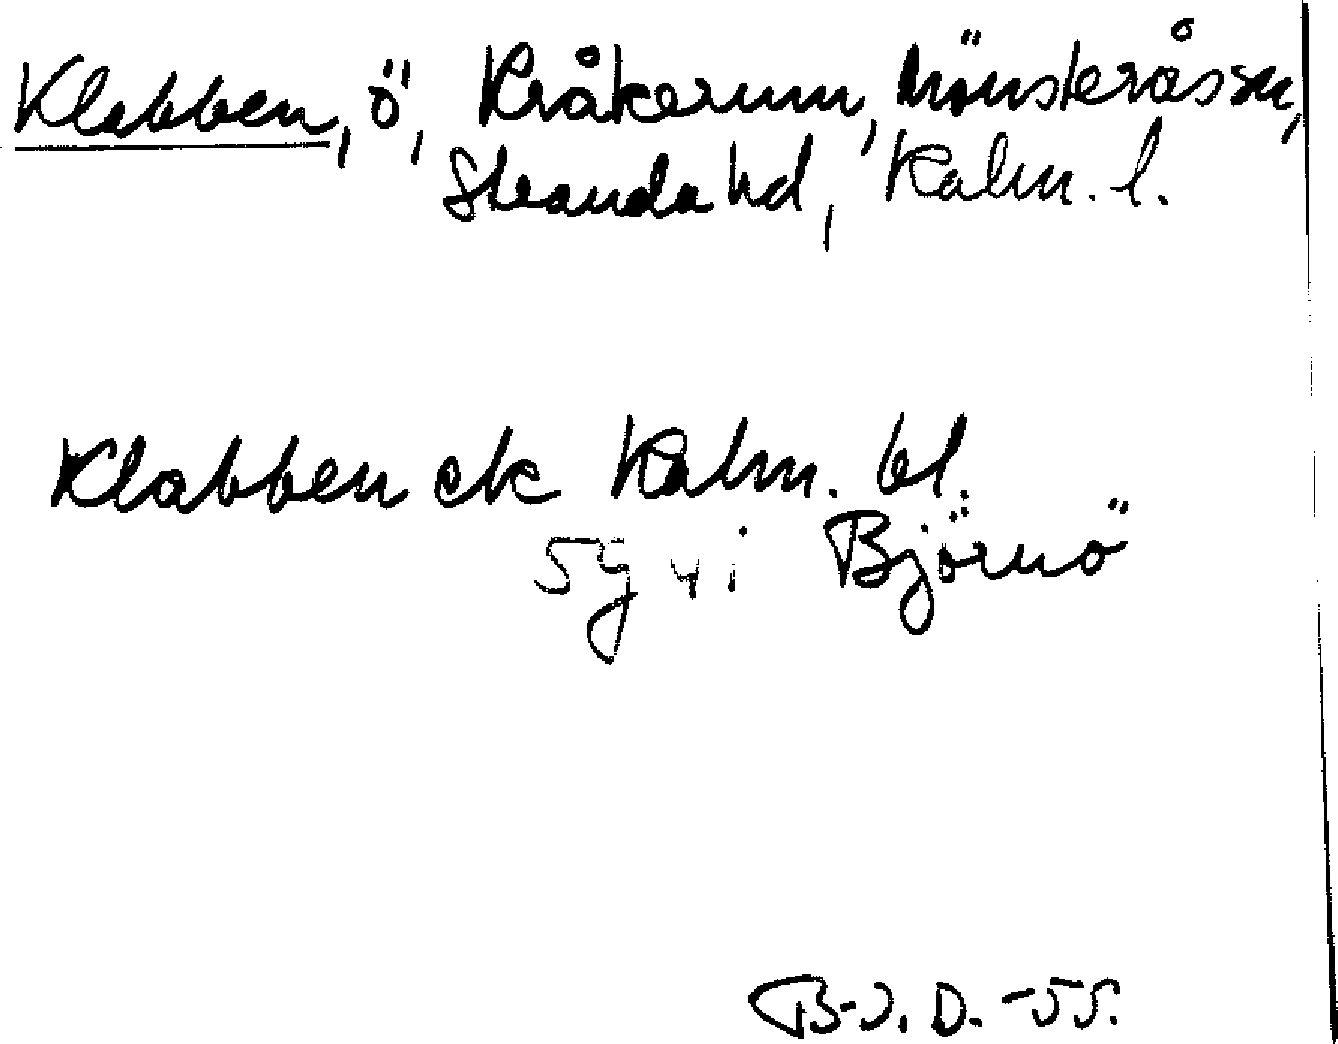 Klabben, ö, Kråkerum, Mönsterås sn,
Stranda hd, Kalm. l.
Klabben ek Kalm. bl.
5g vi Björnö
B-J. D. -55.